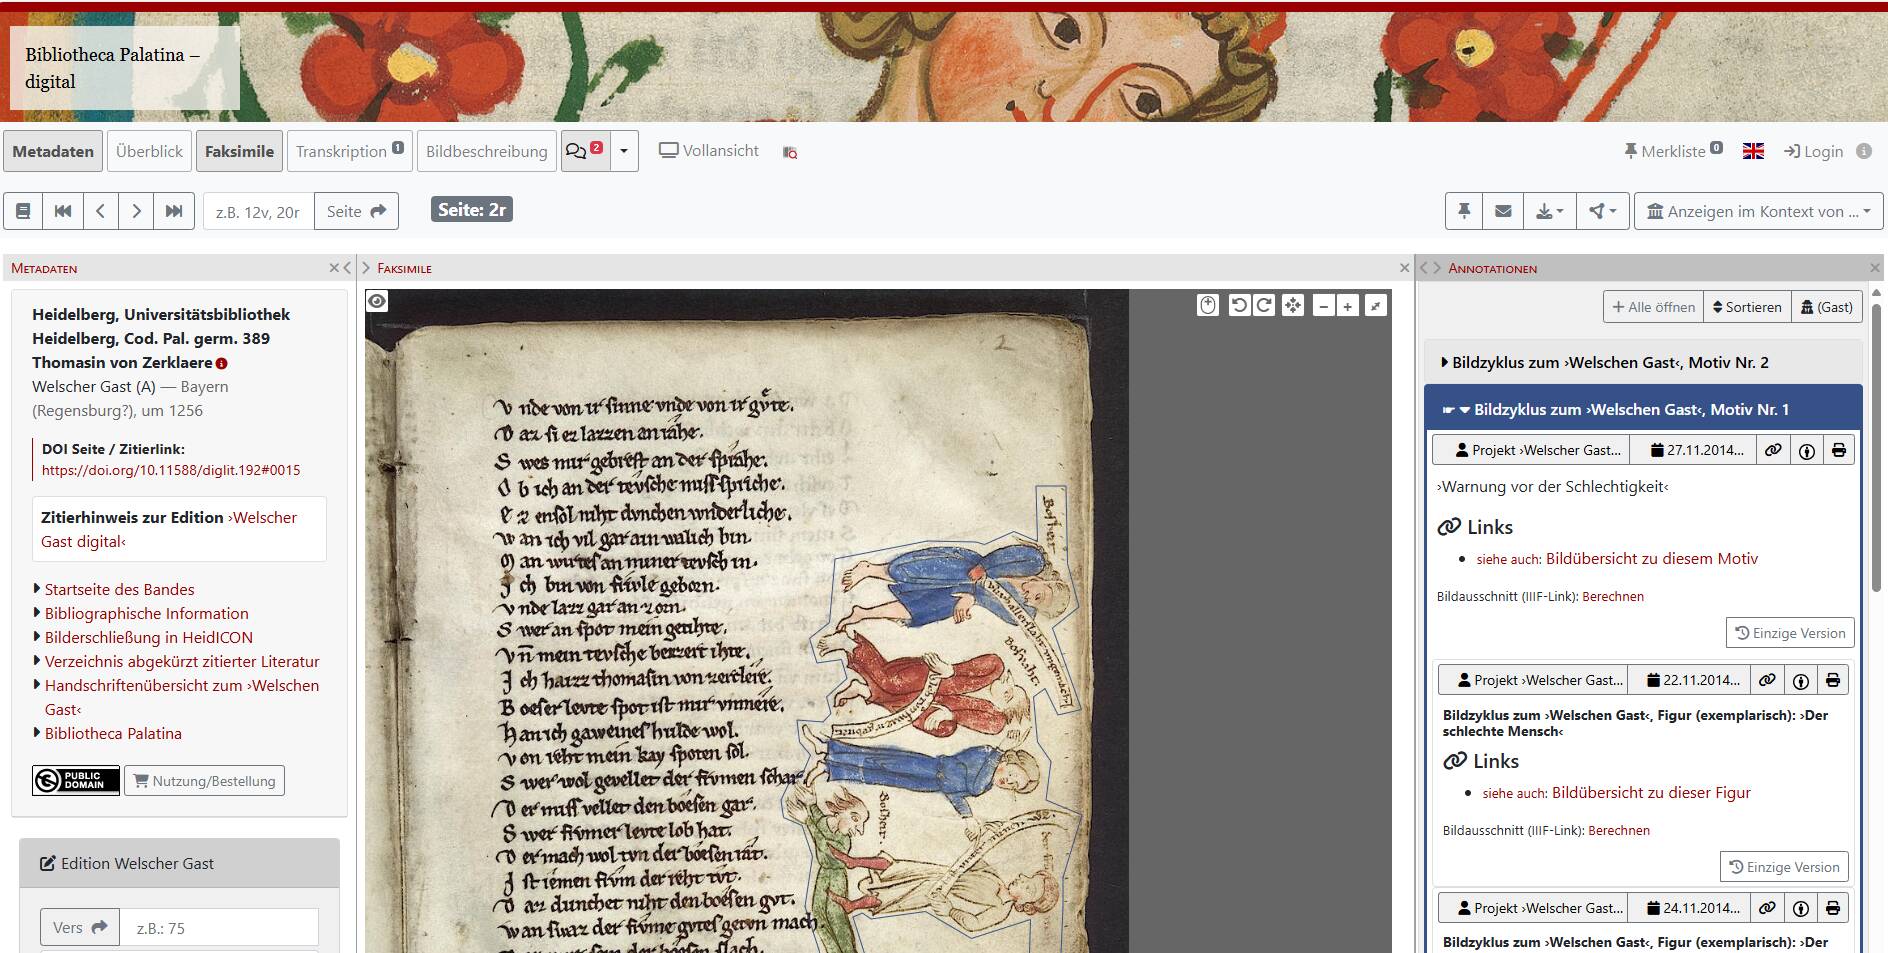 Bibliotheca Palatina –
digital
Metadaten
Überblick
Faksimile
Transkription 1
Bildbeschreibung
2
Vollansicht
Merkliste 0
Login
z.B. 12v, 20r
Seite
Seite: 2r
Anzeigen im Kontext von ...
Metadaten
Heidelberg, Universitätsbibliothek
Heidelberg, Cod. Pal. germ. 389
Thomasin von Zerklaere
Welscher Gast (A) — Bayern
(Regensburg?), um 1256
DOI Seite / Zitierlink:
https://doi.org/10.11588/diglit.192#0015
Zitierhinweis zur Edition ›Welscher
Gast digital‹
Startseite des Bandes
Bibliographische Information
Bilderschließung in HeidICON
Verzeichnis abgekürzt zitierter Literatur
Handschriftenübersicht zum ›Welschen
Gast‹
Bibliotheca Palatina
PUBLIC
DOMAIN
Nutzung/Bestellung
Edition Welscher Gast
Vers
z.B.: 75
Faksimile
2
V nde von ir sinne vnde von ir gv̊te.
D az si ez lazzen an iahe.
S wes mir gebrest an der sprahe.
O b ich an der tevsche missspriche.
E z ensol niht dvnchen wnderliche.
W an ich vil gar ain walich bin.
M an wirtes an miner tevsch in.
J ch bin von frivle geborn.
V nde lazz gar an zorn.
S wer an spot mein getihte.
V n̄ mein tevsche bezzert ihte.
J ch haizz thomasin von zerclere.
B oeser levte spot ist mir vnmere.
H an ich gaweines hulde wol.
V on reht mein kay spoten sol.
S wer wol gevellet der frvmen schar
D er mvss vellen den boesen gar.
S wer frvmer levte lob hat.
D er mach wol tvn der boesen rat.
J st iemen frvm der reht tvt.
D az dunchet niht den boesen gvt.
wan swaz der frvme gvtes geton mach.
Annotationen
Alle öffnen
Sortieren
(Gast)
Bildzyklus zum ›Welschen Gast‹, Motiv Nr. 2
Bildzyklus zum ›Welschen Gast‹, Motiv Nr. 1
Projekt ›Welscher Gast...
27.11.2014...
›Warnung vor der Schlechtigkeit‹
Links
siehe auch: Bildübersicht zu diesem Motiv
Bildausschnitt (IIIF-Link): Berechnen
Einzige Version
Projekt ›Welscher Gast...
22.11.2014...
Bildzyklus zum ›Welschen Gast‹, Figur (exemplarisch): ›Der
schlechte Mensch‹
Links
siehe auch: Bildübersicht zu dieser Figur
Bildausschnitt (IIIF-Link): Berechnen
Einzige Version
Projekt ›Welscher Gast...
24.11.2014...
Bildzyklus zum ›Welschen Gast‹, Figur (exemplarisch): ›Der